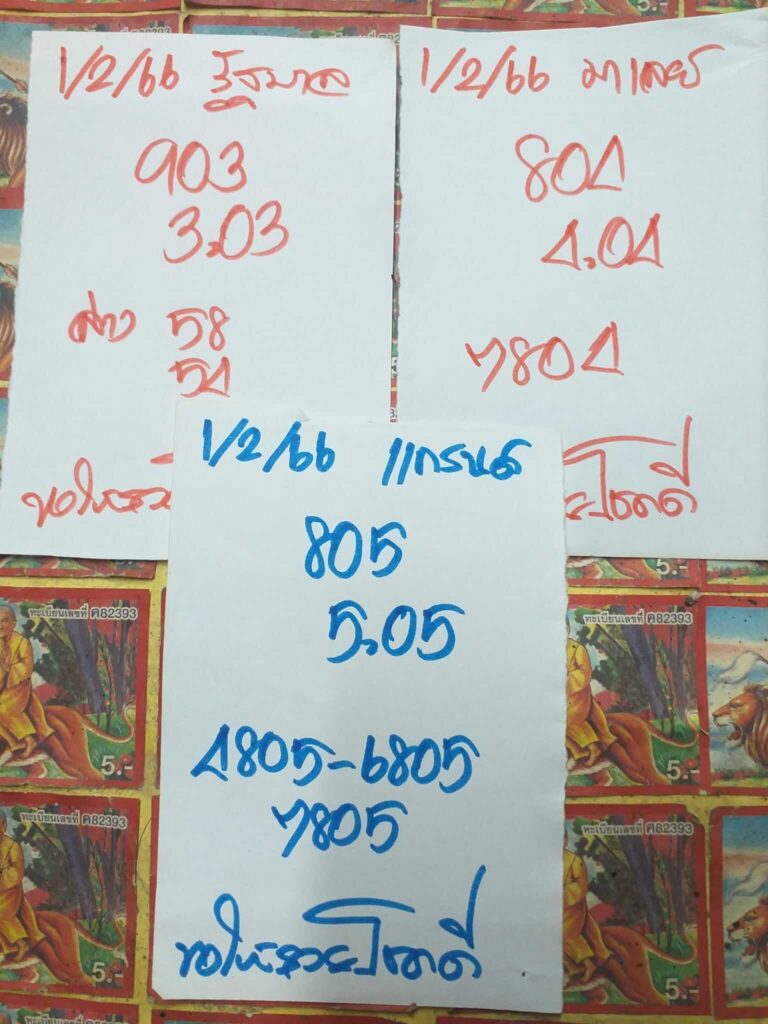 1/2/66 รัฐบาล
903
3.03
ล่าง 58
54
ขอให้รวย
1/2/66 มาเลย์
804
4.04
7804
โชคดี
1/2/66 แกรนด์
805
5.05
4805-6805
7805
ขอให้รวยโชคดี
5.-
5.-
ทะเบียนเลขที่ ค82393
5.-
ทะเบียนเลขที่ ค82393
5.-
ทะเบียนเลขที่ ค82393
5.-
ทะเบียนเลขที่ ค82393
5.-